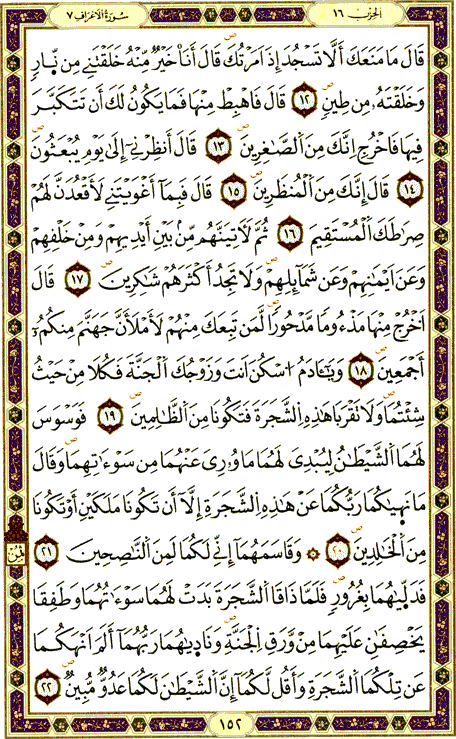 سُورَةُ الْأَعْرَافِ ٧ الحِزْبُ ١٦
قَالَ مَا مَنَعَكَ أَلَّا تَسْجُدَ إِذْ أَمَرْتُكَ قَالَ أَنَا۠ خَيْرٌ مِّنْهُ خَلَقْتَنِي مِن نَّارٍ
وَخَلَقْتَهُۥ مِن طِينٍ ١٢ قَالَ فَاهْبِطْ مِنْهَا فَمَا يَكُونُ لَكَ أَن تَتَكَبَّرَ
فِيهَا فَاخْرُجْ إِنَّكَ مِنَ الصَّٰغِرِينَ ١٣ قَالَ أَنظِرْنِي إِلَىٰ يَوْمِ يُبْعَثُونَ
١٤ قَالَ إِنَّكَ مِنَ الْمُنظَرِينَ ١٥ قَالَ فَبِمَا أَغْوَيْتَنِي لَأَقْعُدَنَّ لَهُمْ
صِرَٰطَكَ الْمُسْتَقِيمَ ١٦ ثُمَّ لَآتِيَنَّهُم مِّنۢ بَيْنِ أَيْدِيهِمْ وَمِنْ خَلْفِهِمْ
وَعَنْ أَيْمَٰنِهِمْ وَعَن شَمَآئِلِهِمْ وَلَا تَجِدُ أَكْثَرَهُمْ شَٰكِرِينَ ١٧ قَالَ
اخْرُجْ مِنْهَا مَذْءُومًا مَّدْحُورًا لَّمَن تَبِعَكَ مِنْهُمْ لَأَمْلَأَنَّ جَهَنَّمَ مِنكُمُۥٓ
أَجْمَعِينَ ١٨ وَيَٰٓـَٔادَمُ اسْكُنْ أَنتَ وَزَوْجُكَ الْجَنَّةَ فَكُلَا مِنْ حَيْثُ
شِئْتُمَا وَلَا تَقْرَبَا هَٰذِهِ الشَّجَرَةَ فَتَكُونَا مِنَ الظَّٰلِمِينَ ١٩ فَوَسْوَسَ
لَهُمَا الشَّيْطَٰنُ لِيُبْدِيَ لَهُمَا مَا وُۥرِيَ عَنْهُمَا مِن سَوْءَٰتِهِمَا وَقَالَ
مَا نَهَىٰكُمَا رَبُّكُمَا عَنْ هَٰذِهِ الشَّجَرَةِ إِلَّآ أَن تَكُونَا مَلَكَيْنِ أَوْ تَكُونَا
مِنَ الْخَٰلِدِينَ ٢٠ ۞ وَقَاسَمَهُمَآ إِنِّي لَكُمَا لَمِنَ النَّٰصِحِينَ ٢١
فَدَلَّىٰهُمَا بِغُرُورٍ فَلَمَّا ذَاقَا الشَّجَرَةَ بَدَتْ لَهُمَا سَوْءَٰتُهُمَا وَطَفِقَا
يَخْصِفَانِ عَلَيْهِمَا مِن وَرَقِ الْجَنَّةِ وَنَادَىٰهُمَا رَبُّهُمَآ أَلَمْ أَنْهَكُمَا
عَن تِلْكُمَا الشَّجَرَةِ وَأَقُل لَّكُمَآ إِنَّ الشَّيْطَٰنَ لَكُمَا عَدُوٌّ مُّبِينٌ ٢٢
١٥٢